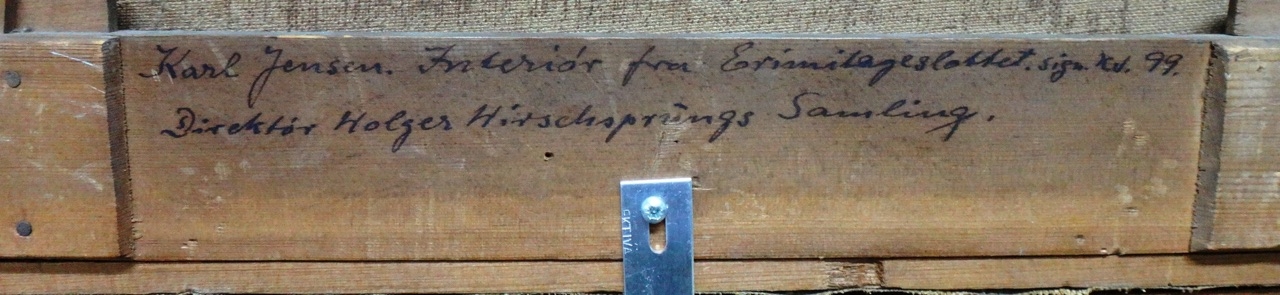 Karl Jensen. Interiör fra Erimitageslottet. sign. 99.
Direktör Holger Hirschsprŭngs Samling.
CKTIVA